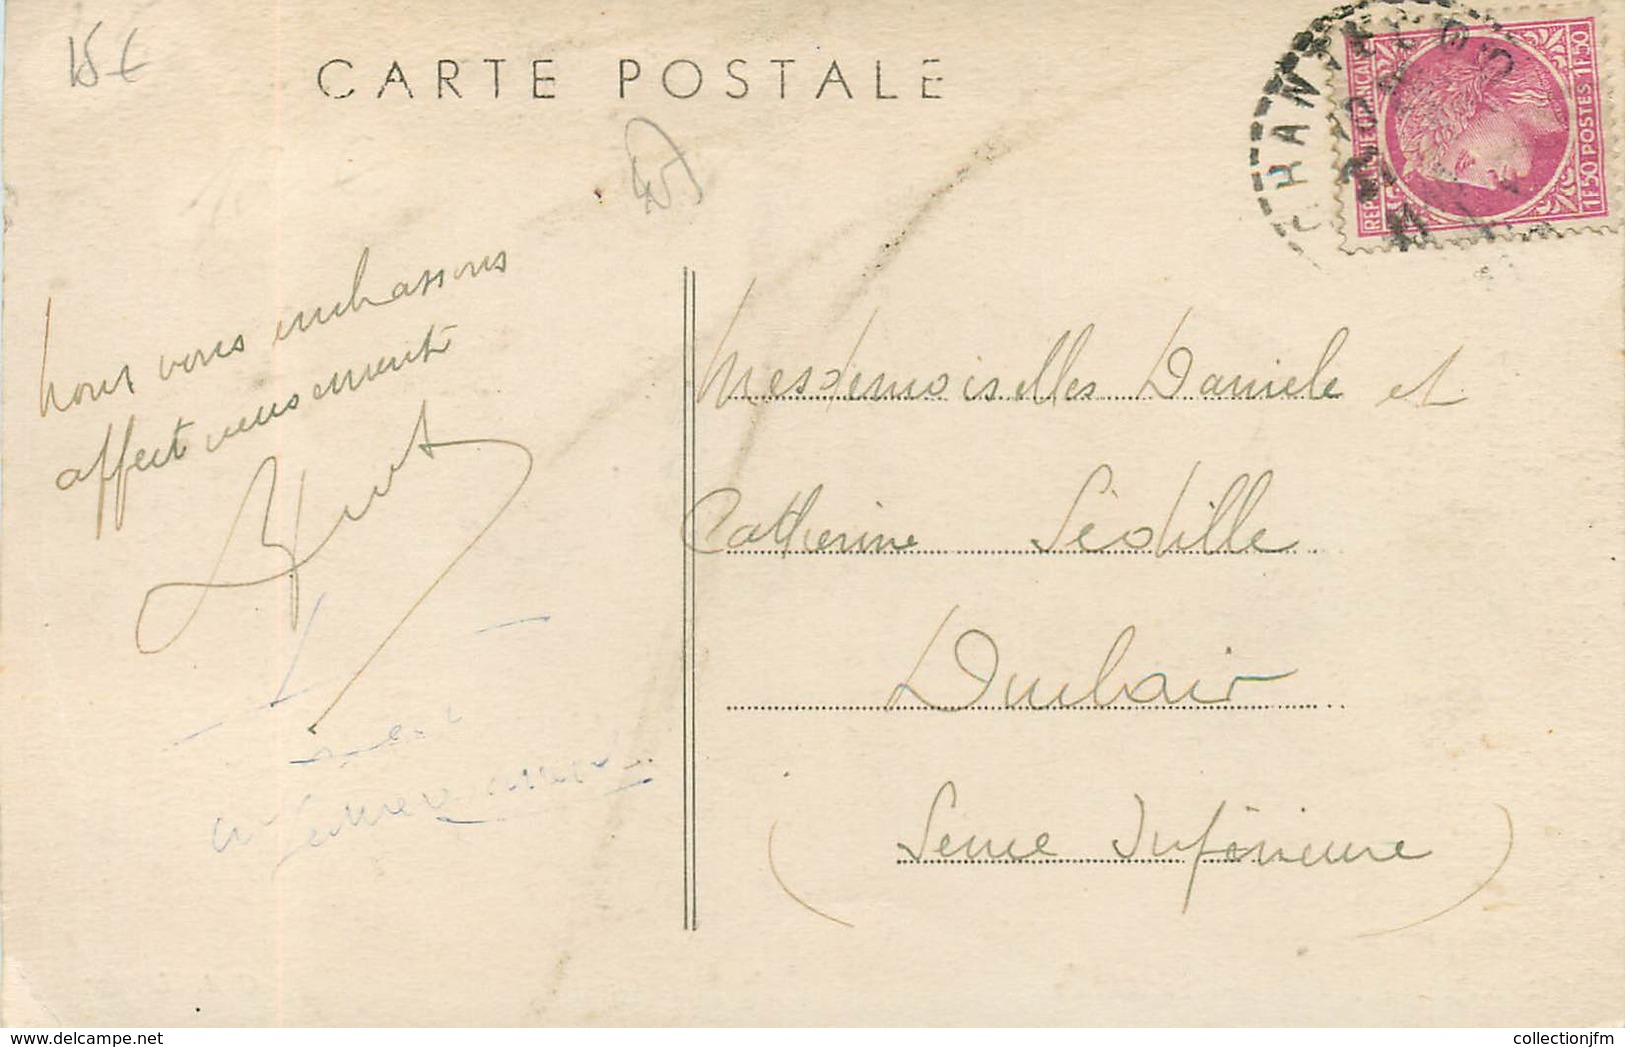 15 €
CARTE POSTALE
REPUBLIQUE FRANÇAISE
1F50 POSTES 1F50
Nous vous embrassons
affectueusement
Mesdemoiselles Daniele et
Catherine Sédille
Duclair
(Seine Inférieure)
collectionjfm